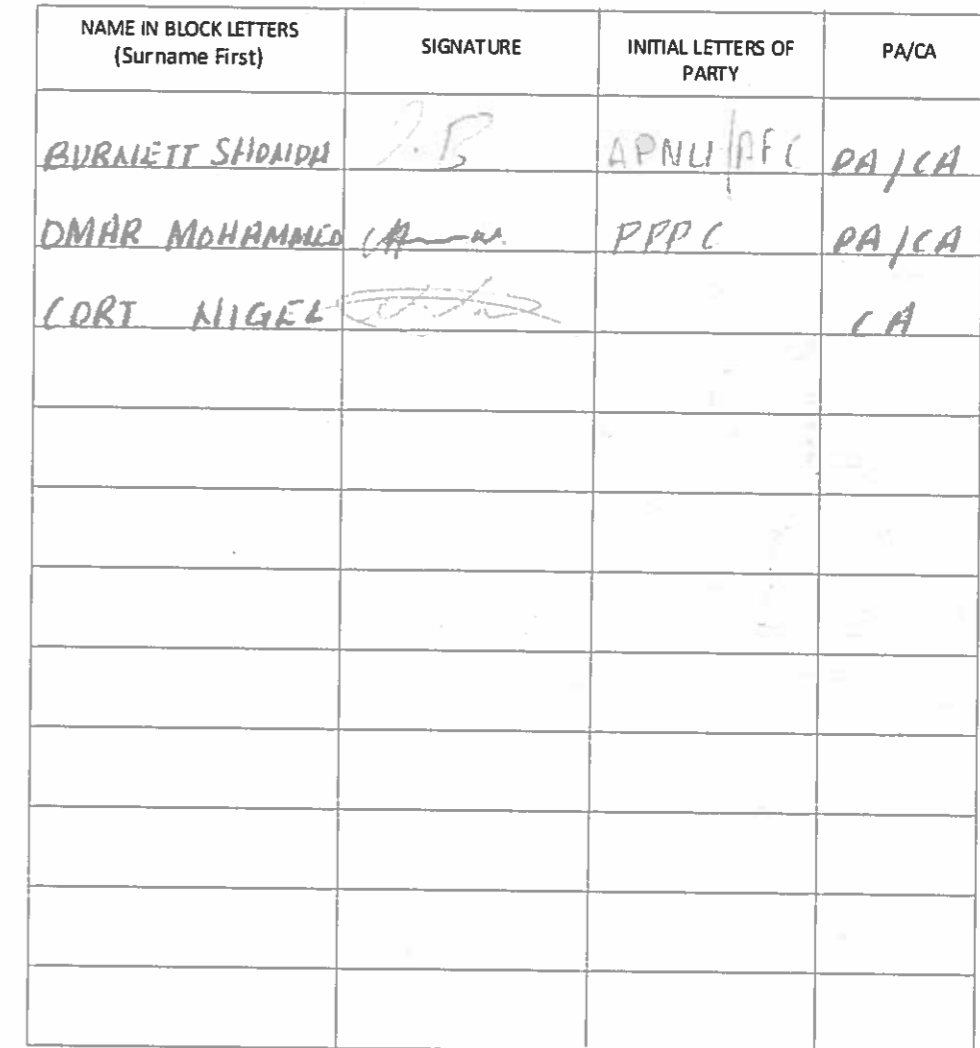 NAME IN BLOCK LETTERS
(Surname First)
SIGNATURE
INITIAL LETTERS OF
PARTY
PA/CA
BURNETT SHONDA
S.B
APNU/AFC
PA/CA
OMAR MOHAMMED
PPPC
PA/CA
CORT NIGEL
CA